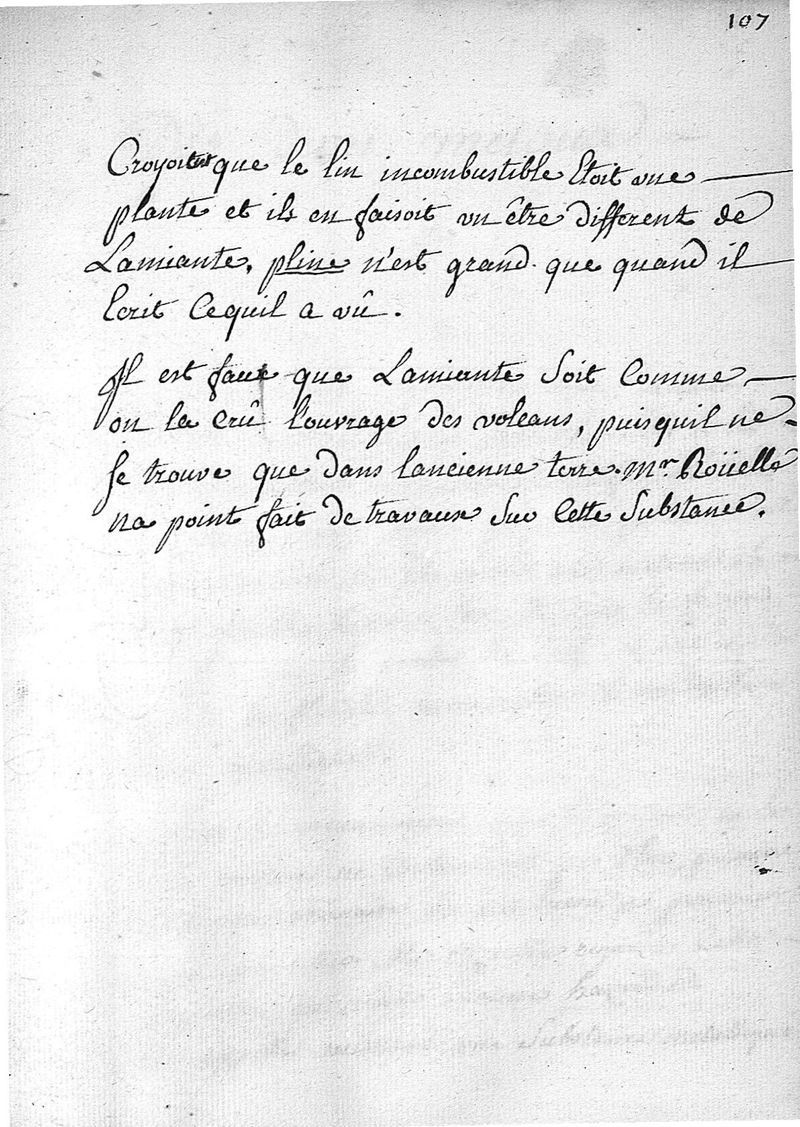 107
Croyoient que le lin incombustible Etoit une
plante et ils en faisoit un être different de
Lamiante, pline n'est grand que quand il
Ecrit Cequil a vû.
Il est faux que Lamiante Soit Comme
on la Crû l'ouvrage des volcans, puisquil ne
se trouve que dans lancienne terre. Mr. Roüelle
na point fait de travaux Sur Cette Substance.